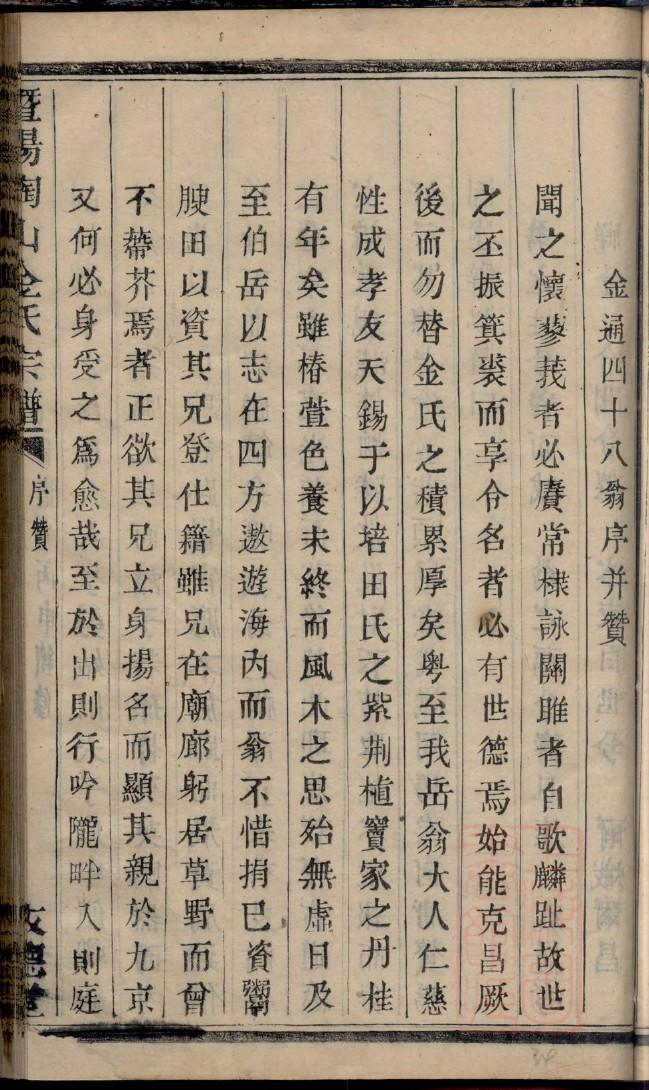 金通四十八翁序并贊
聞之懷蓼莪者必賡常棣詠關雎者自歌麟趾故世
之丕振箕裘而享令名者必有世德焉始能克昌厥
後而勿替金氏之積累厚矣粵至我岳翁大人仁慈
性成孝友天錫于以培田氏之紫荆植竇家之丹桂
有年矣雖椿萱色養未終而風木之思殆無虛日及
至伯岳以志在四方遨遊海內而翁不惜捐已資鬻
腴田以資其兄登仕籍雖兄在廟廊躬居草野而曾
不蔕芥焉者正欲其兄立身揚名而顯其親於九京
又何必身受之爲愈哉至於出則行吟隴畔入則庭
暨陽陶山金氏宗譜 序贊 文德堂